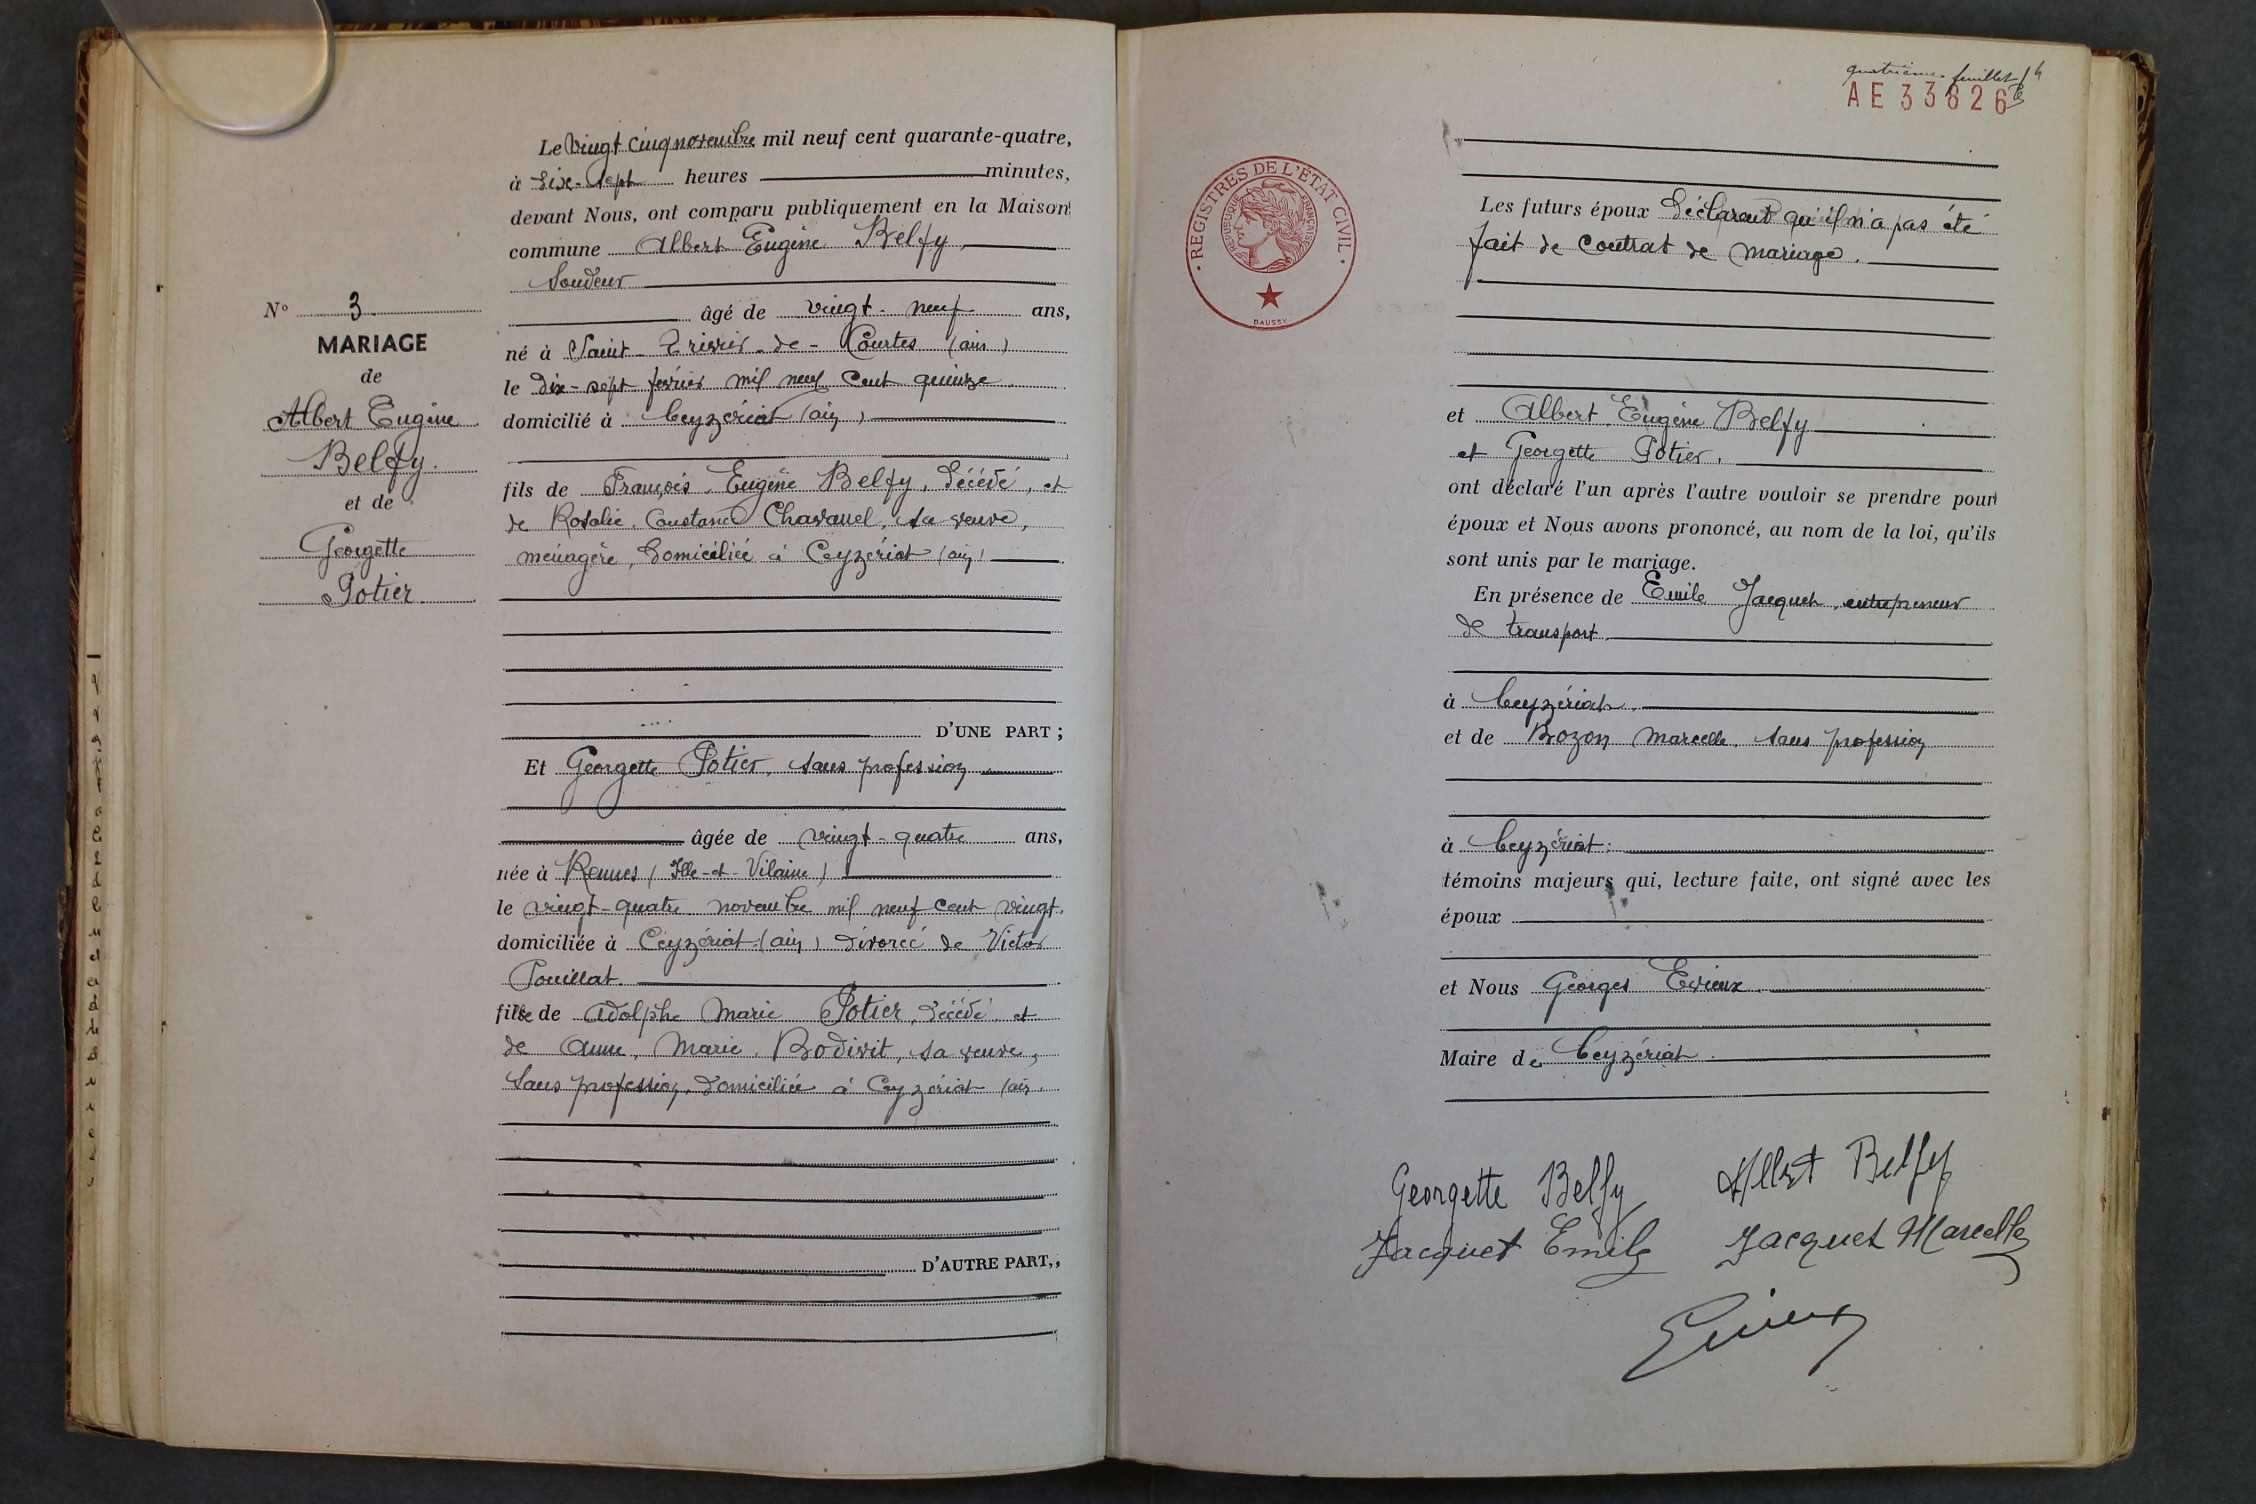 Le Vingt cinq novembre mil neuf cent quarante-quatre,
à dix-sept heures minutes,
devant Nous, ont comparu publiquement en la Maison
commune Albert Eugène Belfy
Soudeur
âgé de vingt-neuf ans,
né à Saint-Trivier-de-Courtes (ain)
le dix-sept février mil neuf cent quinze
domicilié à Ceyzériat (ain)
fils de François, Eugène Belfy, décédé, et
de Rosalie, Constance Chavanel, sa veuve,
ménagère, domiciliée à Ceyzériat (ain)
D'UNE PART ;
Et Georgette Potier, sans profession
âgée de vingt-quatre ans,
née à Rennes (Ille-et-Vilaine)
le vingt-quatre novembre mil neuf cent vingt
domiciliée à Ceyzériat (ain) divorcé de Victor
Pouillat.
fille de Adolphe Marie Potier, décédé et
de Anne, Marie, Bodivit, sa veuve,
Sans profession, domiciliée à Ceyzériat (ain
D'AUTRE PART,
N° 3
MARIAGE
de
Albert Eugène
Belfy.
et de
Georgette
Potier
quatrième feuillet
AE 33826
REGISTRES DE L'ÉTAT CIVIL
REPUBLIQUE FRANÇAISE
DAUSSY
Les futurs époux déclarent qu'il n'a pas été
fait de contrat de mariage.
et Albert, Eugène Belfy
et Georgette Potier.
ont déclaré l'un après l'autre vouloir se prendre pour
époux et Nous avons prononcé, au nom de la loi, qu'ils
sont unis par le mariage.
En présence de Emile Jacquet, entrepreneur
de transport
à Ceyzériat
et de Bozon Marcelle, sans profession
à Ceyzériat.
témoins majeurs qui, lecture faite, ont signé avec les
époux
et Nous Georges Evieux
Maire de Ceyzériat
Georgette Belfy Albert Belfy
Jacquet Emile Jacquet Marcelle
Evieux